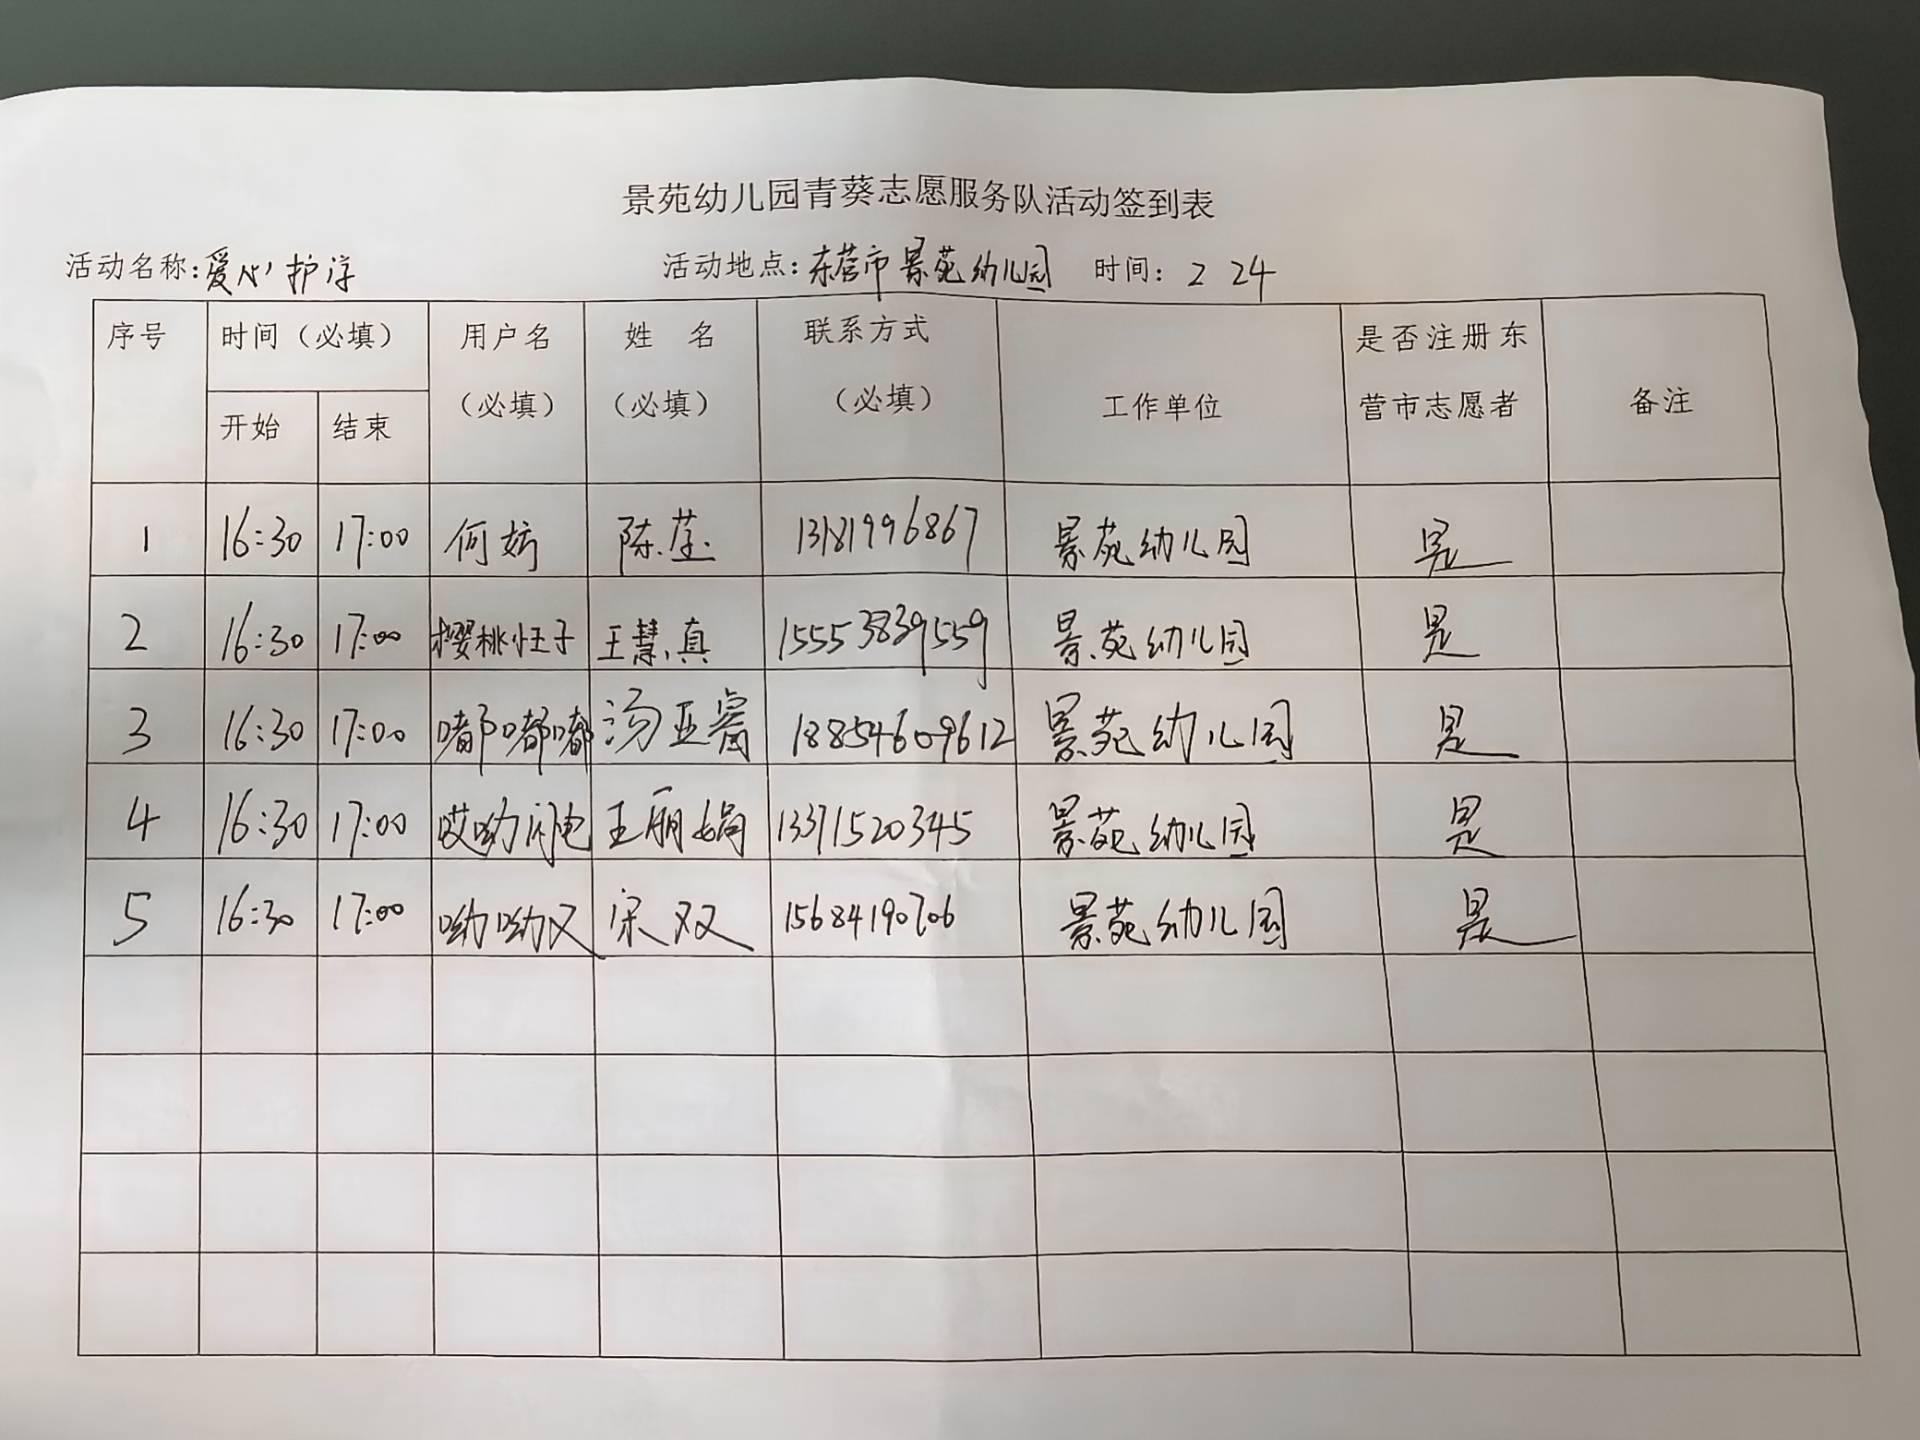 景苑幼儿园青葵志愿服务队活动签到表
活动名称:爱心护学 活动地点:东营市景苑幼儿园 时间: 2 24
序号 时间(必填) 用户名(必填) 姓 名(必填) 联系方式(必填) 工作单位 是否注册东营市志愿者 备注
开始 结束
1 16:30 17:00 何妨 陈 13181996867 景苑幼儿园 是
2 16:30 17:00 樱桃性子 王慧真 15553839559 景苑幼儿园 是
3 16:30 17:00 嘟嘟嘟 汤亚睿 18854609612 景苑幼儿园 是
4 16:30 17:00 哎呦闪电 王丽娟 13371520345 景苑幼儿园 是
5 16:30 17:00 呦呦又 宋双 15684190706 景苑幼儿园 是